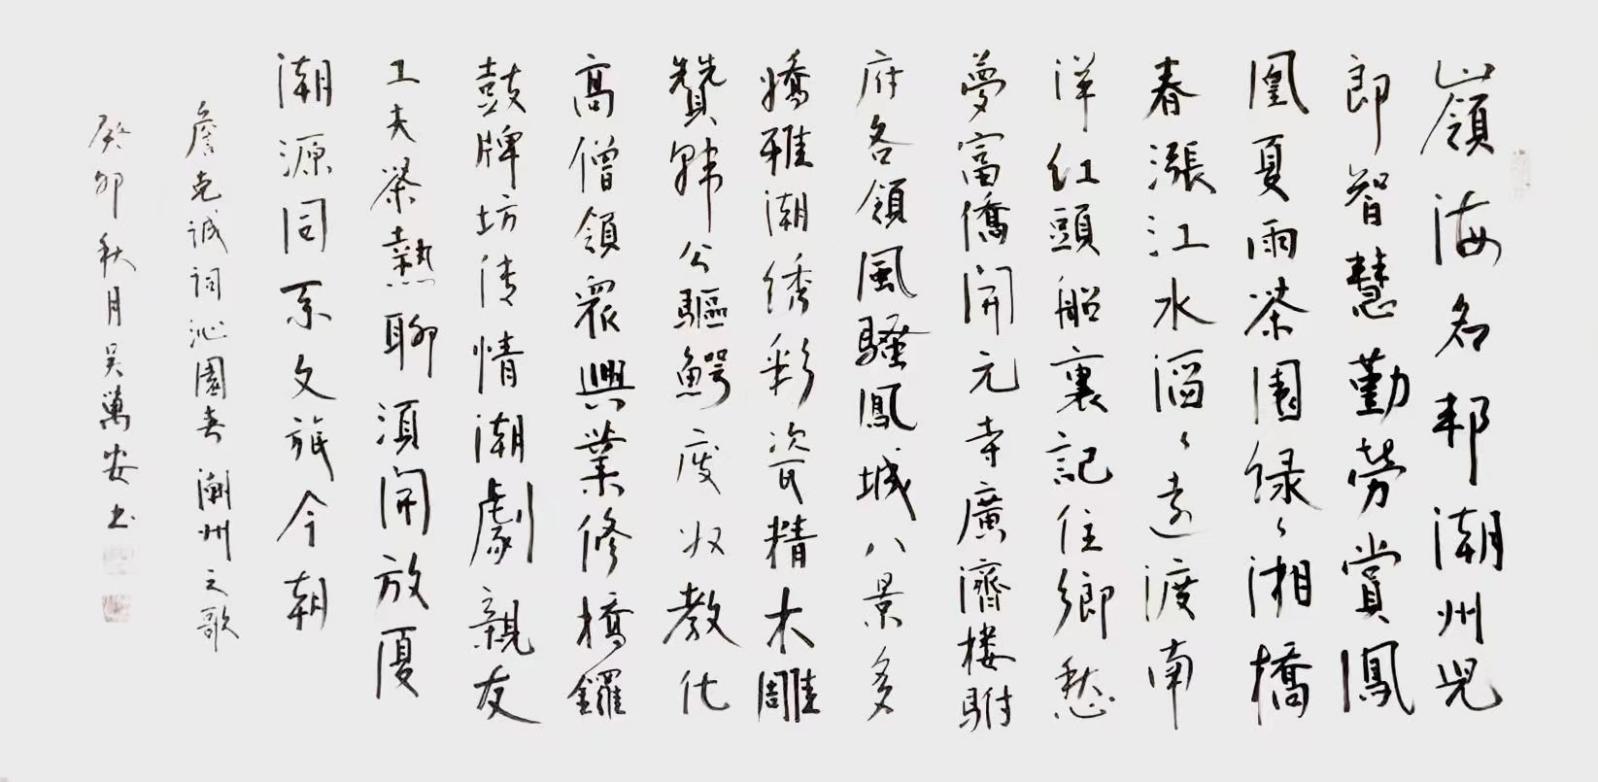 嶺海名邦潮州兒
郎智慧勤勞賞鳳
凰夏雨茶園綠〻湘橋
春漲江水滔〻遠渡南
洋紅頭船裏記住鄉愁
夢富僑開元寺廣濟樓駙
府各領風騷鳳城八景多
嬌雅潮綉彩瓷精木雕
贊韩公驅鱷廢奴教化
高僧領眾興業修橋鑼
鼓牌坊傳情潮劇親友
工夫茶熱聊須開放厦
潮源同系文旅今朝
詹克誠詞沁園春潮州之歌
癸卯秋月吳萬安书